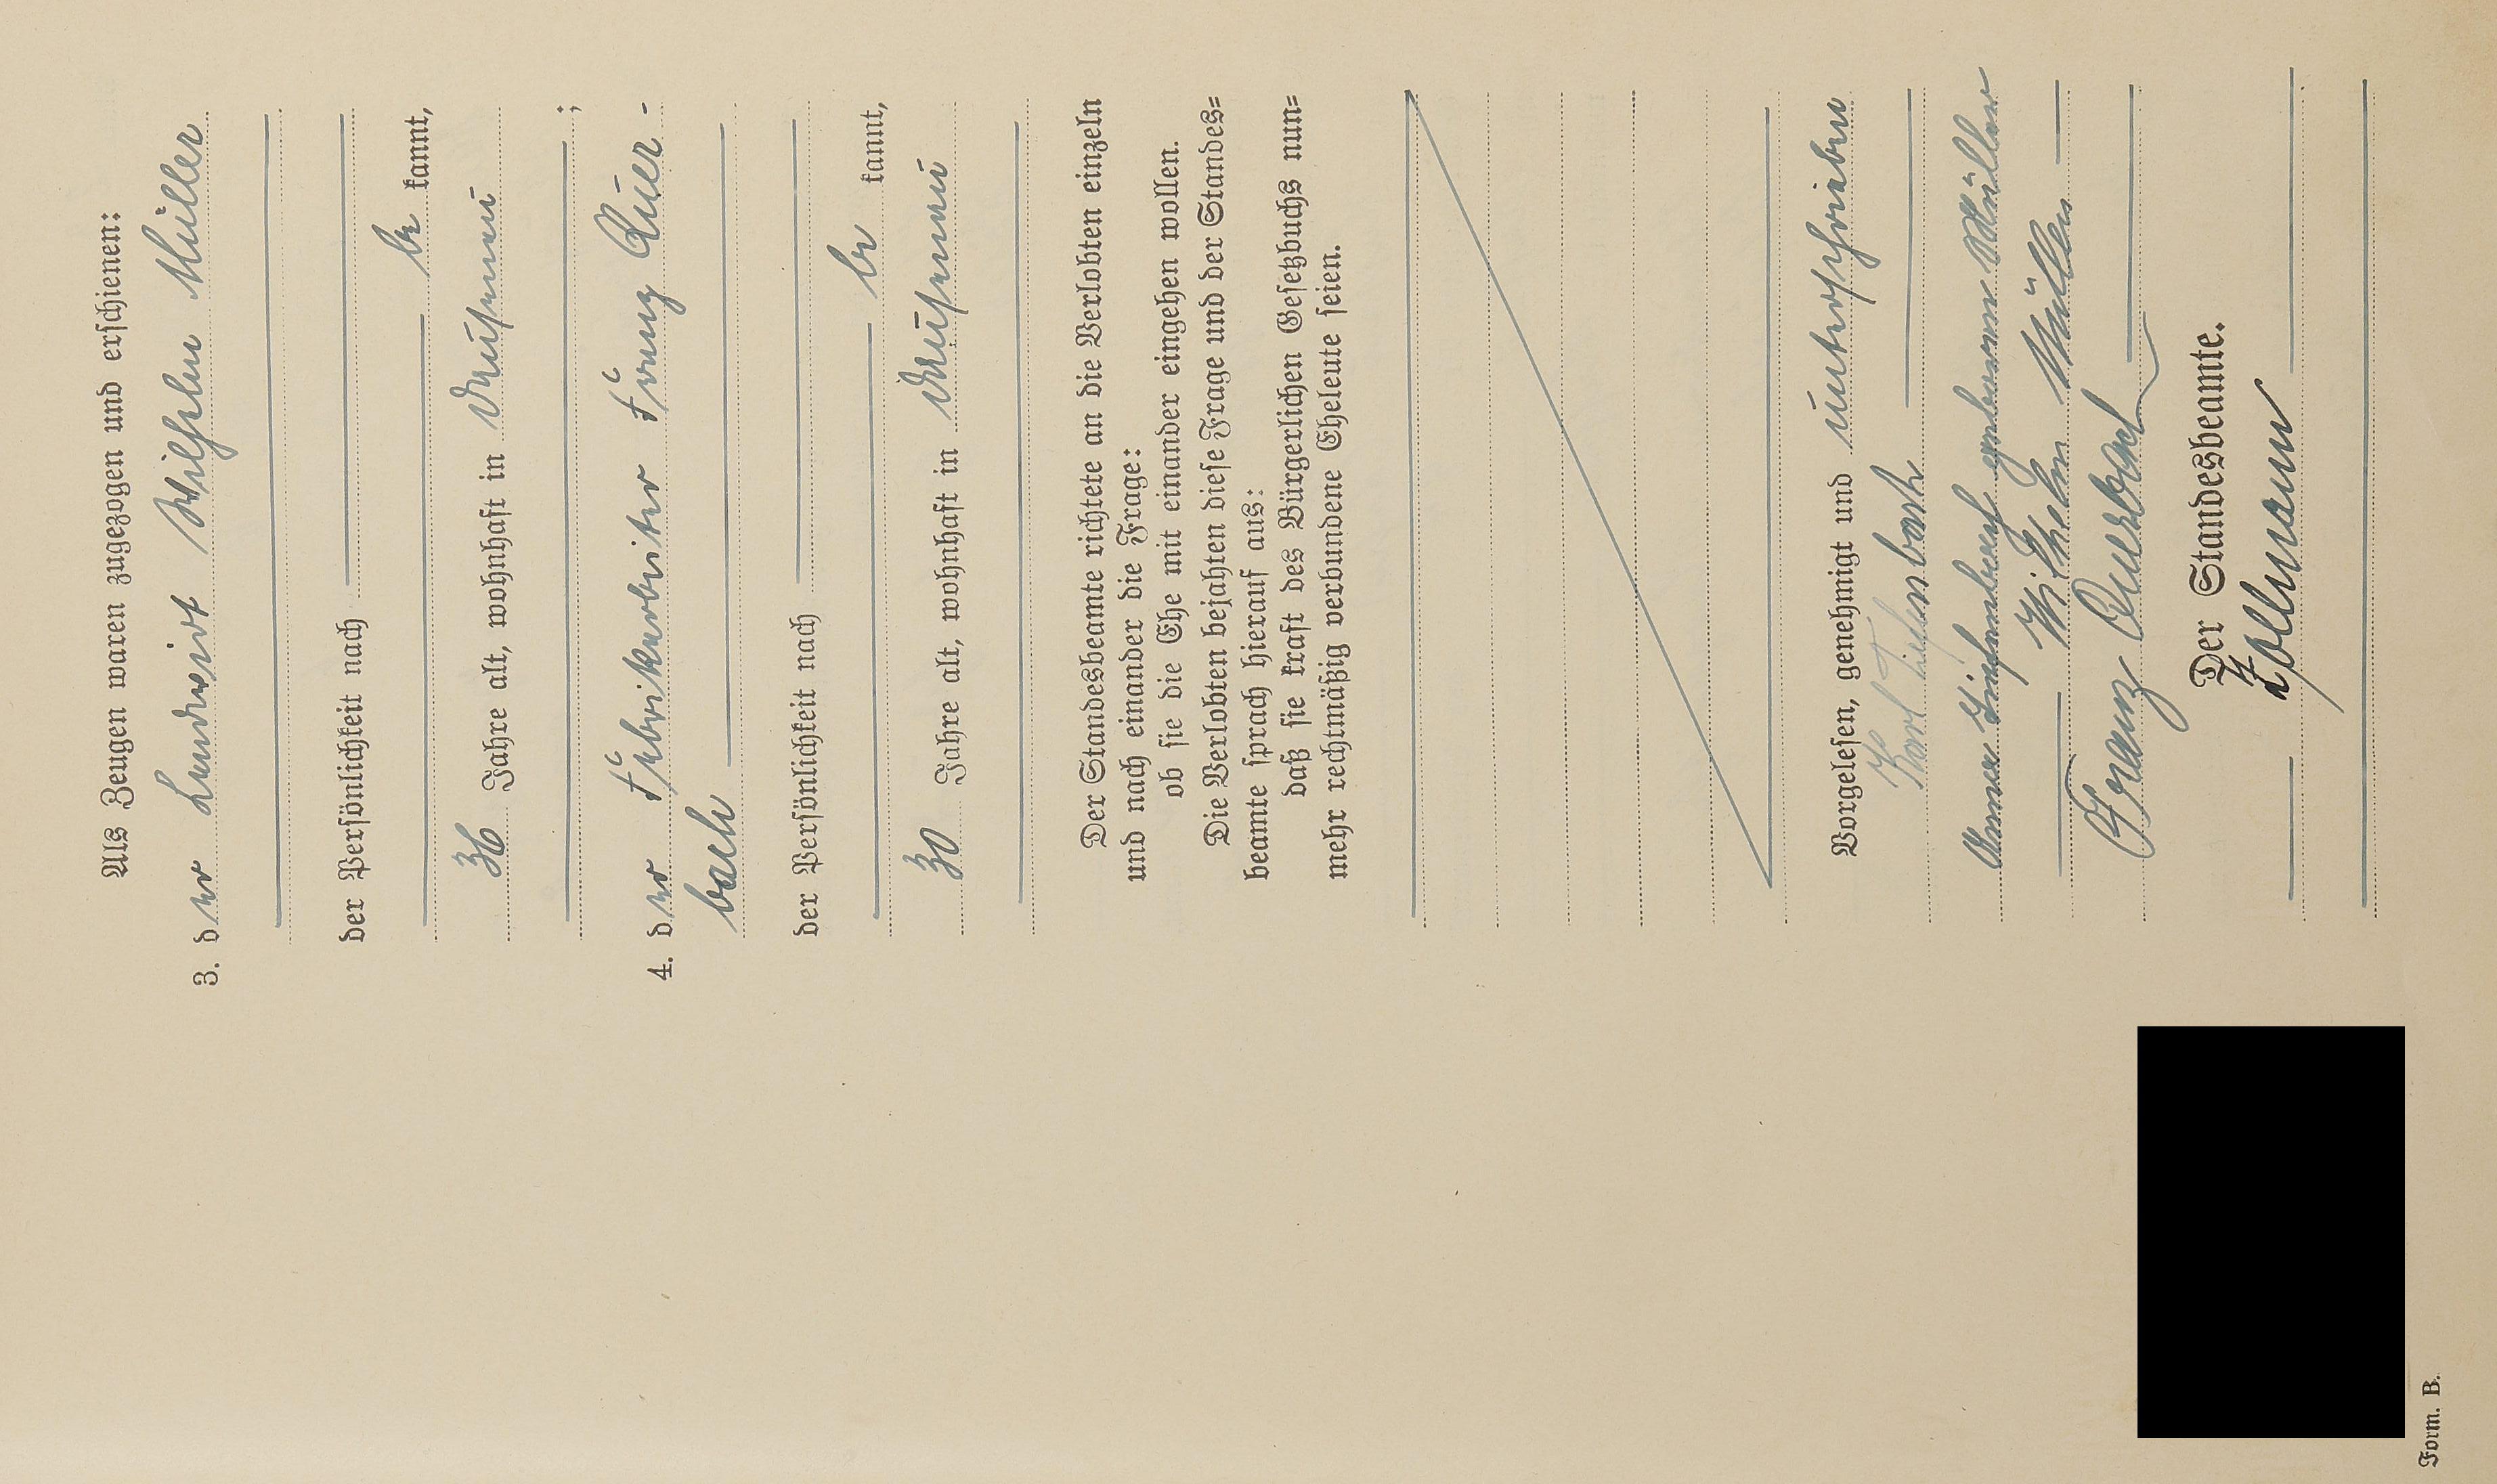 Als Zeugen waren zugezogen und erschienen:
3. der Landwirt Wilhelm Müller
der Persönlichkeit nach
be kannt,
36 Jahre alt, wohnhaft in
;
4. der Fabrikarbeiter Franz Quer-
bach
der Persönlichkeit nach
be kannt,
30 Jahre alt, wohnhaft in
Der Standesbeamte richtete an die Verlobten einzeln
und nach einander die Frage:
ob sie die Ehe mit einander eingehen wollen.
Die Verlobten bejahten diese Frage und der Standes=
beamte sprach hierauf aus:
daß sie kraft des Bürgerlichen Gesetzbuchs nun=
mehr rechtmäßig verbundene Eheleute seien.
Vorgelesen, genehmigt und unterschrieben
Karl Tiefenbach
Anna Tiefenbach geborene Müller
Wilhelm Müller
Franz Querbach
Der Standesbeamte.
Zollmann
Form. B.